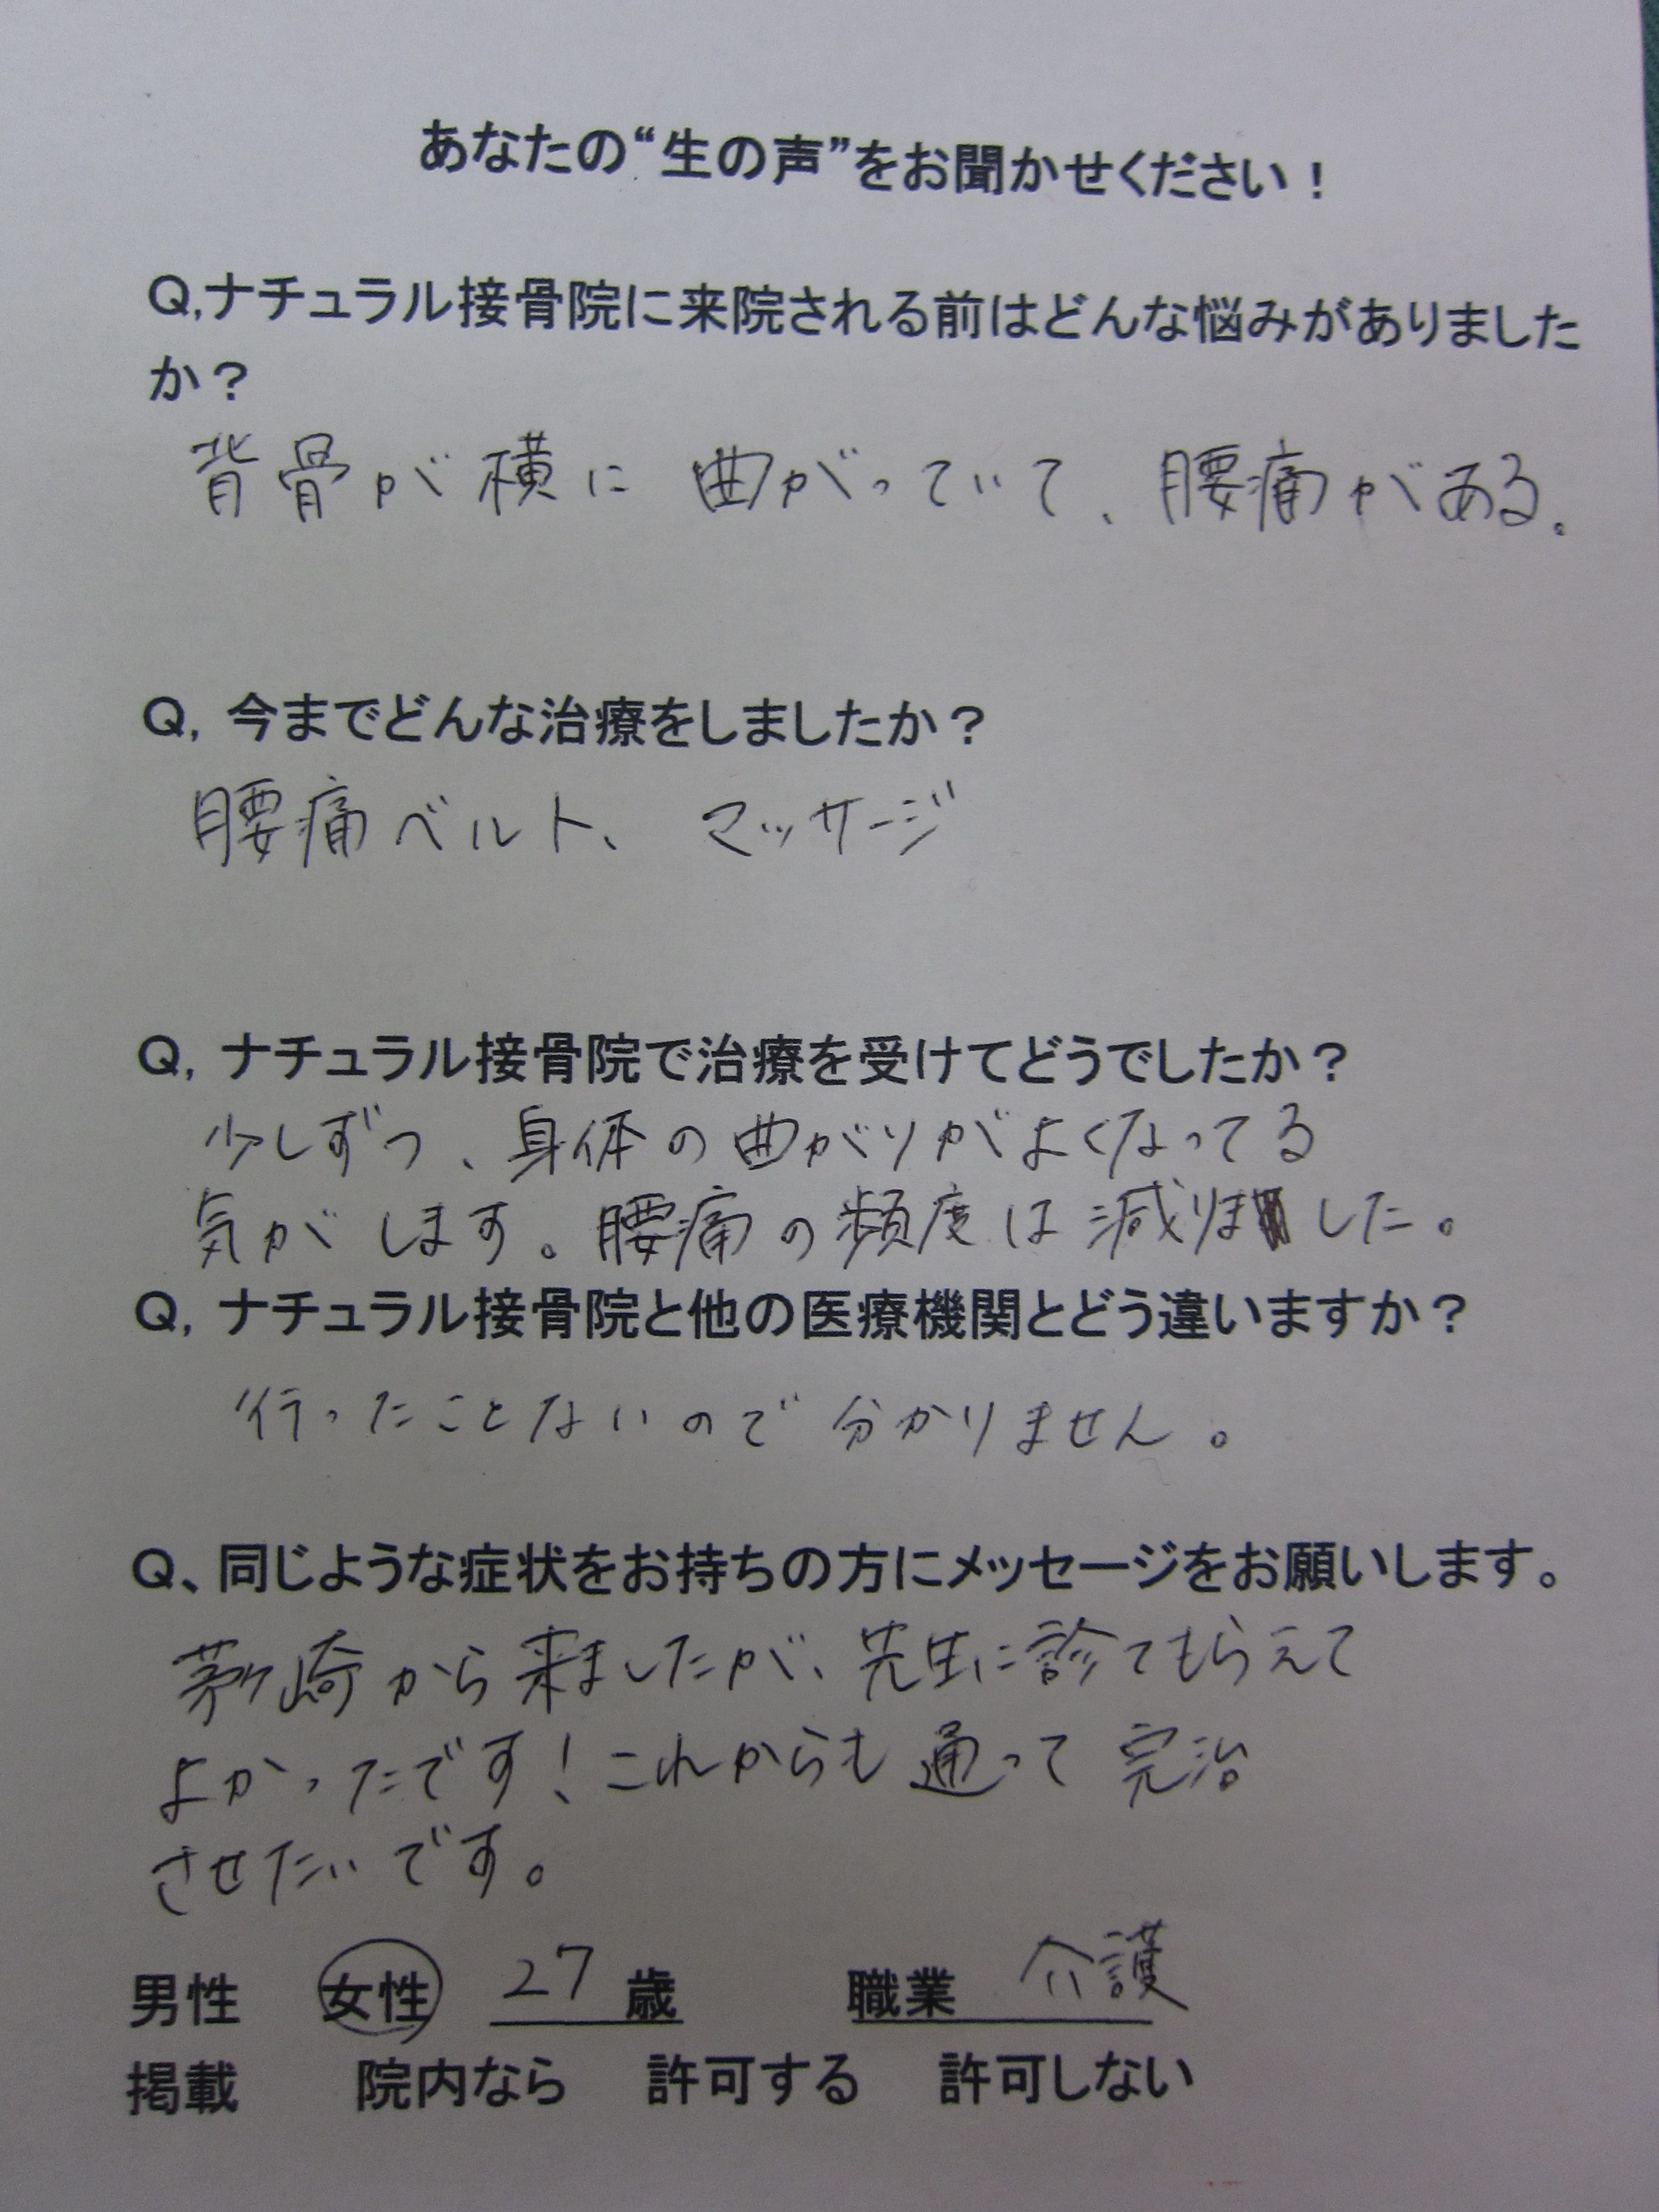 あなたの“生の声”をお聞かせください！
Q,ナチュラル接骨院に来院される前はどんな悩みがありました
か？
背骨が横に曲がっていて、腰痛がある。
Q, 今までどんな治療をしましたか？
腰痛ベルト、マッサージ
Q, ナチュラル接骨院で治療を受けてどうでしたか？
少しずつ、身体の曲がりがよくなってる
気がします。腰痛の頻度は減りました。
Q, ナチュラル接骨院と他の医療機関とどう違いますか？
行ったことないので分かりません。
Q、同じような症状をお持ちの方にメッセージをお願いします。
茅ヶ崎から来ましたが、先生に診てもらえて
よかったです！これからも通って完治
させたいです。
男性 女性 27 歳 職業 介護
掲載 院内なら 許可する 許可しない